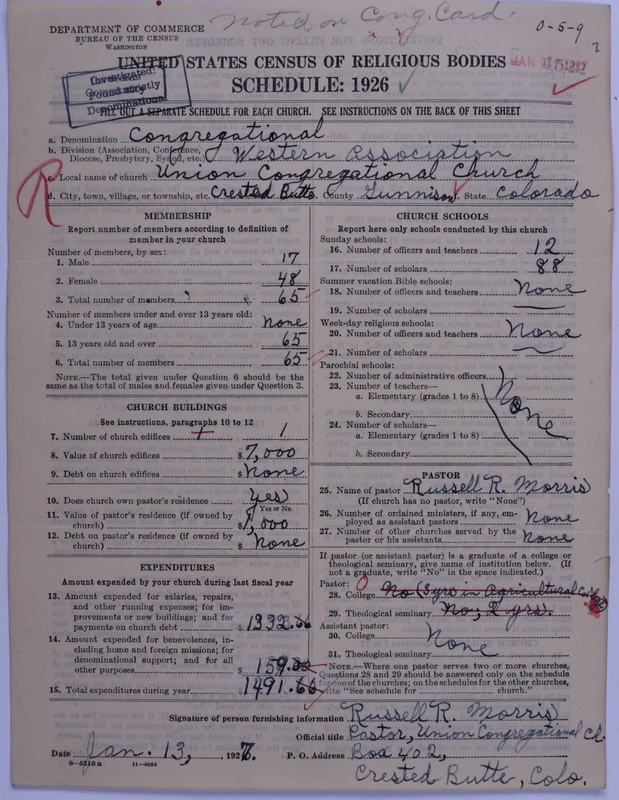 Noted on Cong. Card.
0-5-9
DEPARTMENT OF COMMERCE
BUREAU OF THE CENSUS
WASHINGTON
UNITED STATES CENSUS OF RELIGIOUS BODIES
SCHEDULE: 1926
Denominational
FILL OUT A SEPARATE SCHEDULE FOR EACH CHURCH. SEE INSTRUCTIONS ON THE BACK OF THIS SHEET
a. Denomination Congregational
b. Division (Association, Conference, Diocese, Presbytery, Synod, etc.) Western Association
c. Local name of church Union Congregational Church
R
d. City, town, village, or township, etc. Crested Butte County Gunnison State Colorado
MEMBERSHIP
Report number of members according to definition of
member in your church
Number of members, by sex:
1. Male 17
2. Female 48
3. Total number of members 65
Number of members under and over 13 years old:
4. Under 13 years of age None
5. 13 years old and over 65
6. Total number of members 65
NOTE.—The total given under Question 6 should be
same as the total of males and females given under Question 3.
CHURCH BUILDINGS
See instructions, paragraphs 10 to 12
7. Number of church edifices 1
8. Value of church edifices $ 7,000
9. Debt on church edifices $ None
10. Does church own pastor's residence yes
Yes or No
11. Value of pastor's residence (if owned by
church) $ 1,000
12. Debt on pastor's residence (if owned by
church) $ None
EXPENDITURES
Amount expended by your church during last fiscal year
13. Amount expended for salaries, repairs,
and other running expenses; for im-
provements or new buildings; and for
payments on church debt $ 1332.66
14. Amount expended for benevolences, in-
cluding home and foreign missions; for
denominational support; and for all
other purposes $ 159.00
15. Total expenditures during year $ 1491.66
CHURCH SCHOOLS
Report here only schools conducted by this church
Sunday schools:
16. Number of officers and teachers 12
17. Number of scholars 88
Summer vacation Bible schools:
18. Number of officers and teachers None
19. Number of scholars
Week-day religious schools:
20. Number of officers and teachers None
21. Number of scholars
Parochial schools:
22. Number of administrative officers
23. Number of teachers—
a. Elementary (grades 1 to 8) None
b. Secondary
24. Number of scholars—
a. Elementary (grades 1 to 8)
b. Secondary
PASTOR
25. Name of pastor Russell R. Morris
(If church has no pastor, write "None")
26. Number of ordained ministers, if any, em-
ployed as assistant pastors None
27. Number of other churches served by the
pastor or his assistants None
If pastor (or assistant pastor) is a graduate of a college or
theological seminary, give name of institution below. (If
not a graduate, write "No" in the space indicated.)
Pastor: 0
28. College No (3 yrs in Agricultural
29. Theological seminary No; 2 yrs.
Assistant pastor:
30. College None
31. Theological seminary
NOTE.—Where one pastor serves two or more churches,
Questions 28 and 29 should be answered only on the schedule
for one of the churches; on the schedules for the other churches,
write "See schedule for church."
Signature of person furnishing information Russell R. Morris
Official title Pastor, Union Congregational Ch.
Date Jan. 13, 1927. P. O. Address Box 402,
8-5518a 11-9064
Crested Butte, Colo.